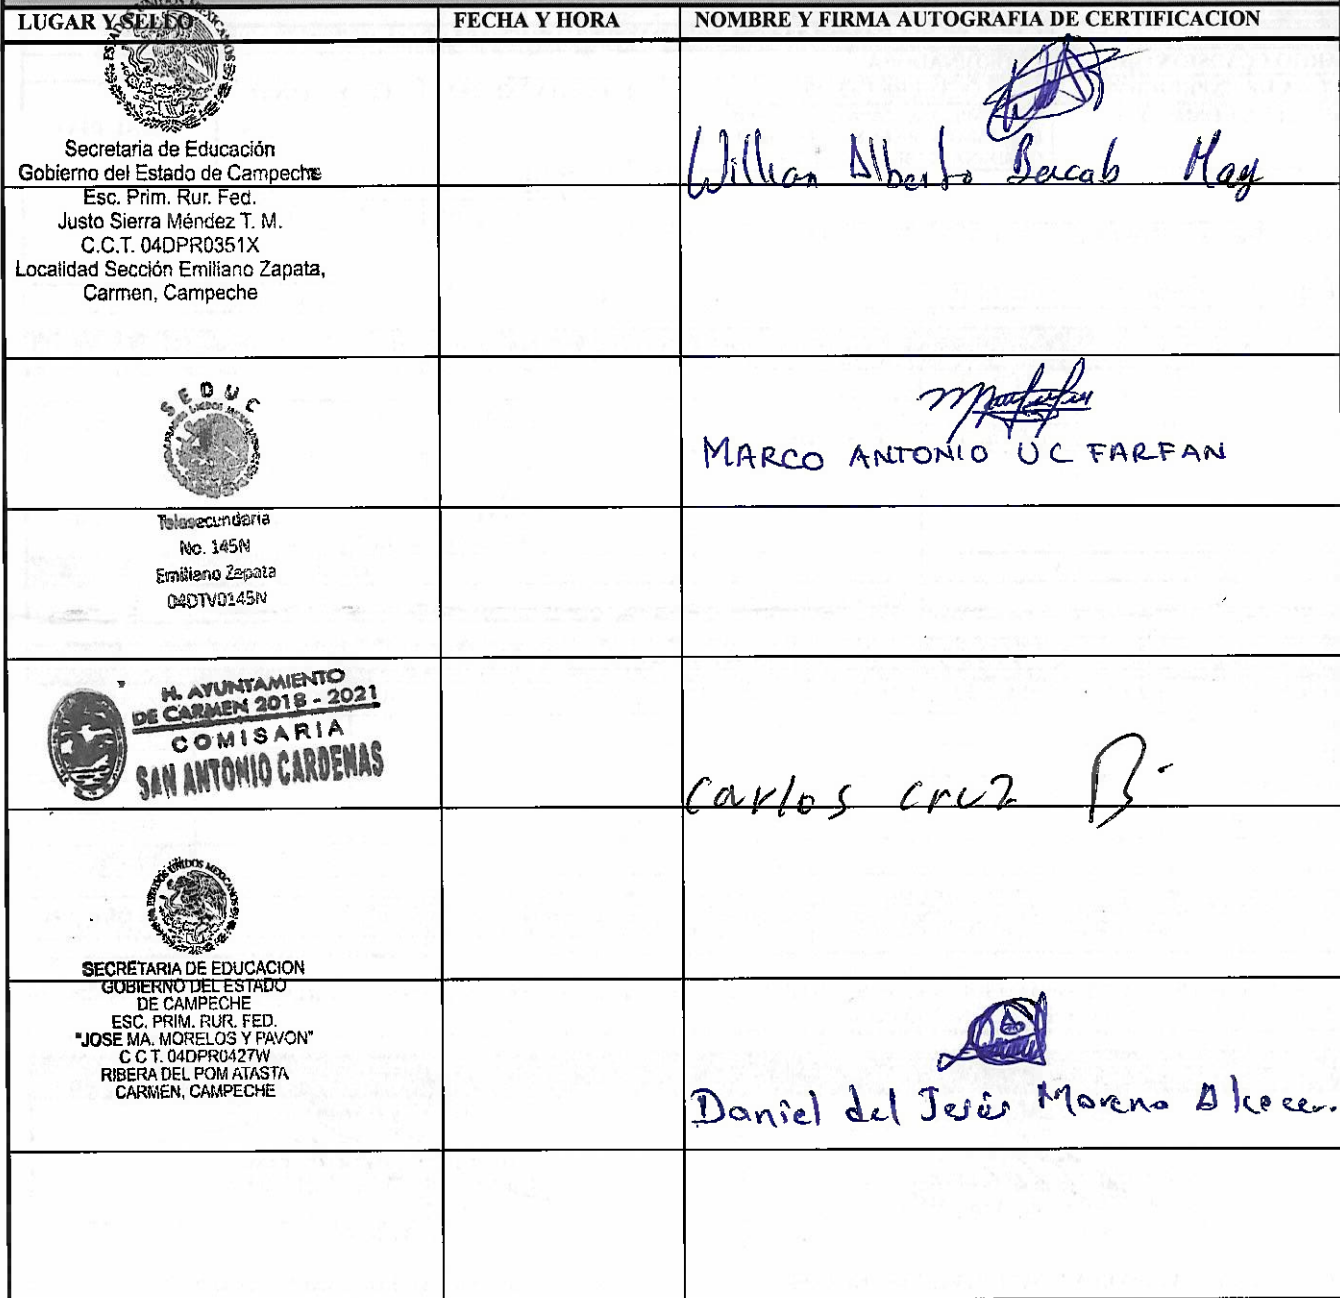 LUGAR Y SELLO FECHA Y HORA NOMBRE Y FIRMA AUTOGRAFIA DE CERTIFICACION
ESTADOS UNIDOS MEXICANOS
Secretaria de Educación
Gobierno del Estado de Campeche
Esc. Prim. Rur. Fed.
Justo Sierra Méndez T. M.
C.C.T. 04DPR0351X
Localidad Sección Emiliano Zapata,
Carmen, Campeche
Willian Alberto Bacab May
SEDUC
Telesecundaria
No. 145N
Emiliano Zapata
04DTV0145N
MARCO ANTONIO UC FARFAN
H. AYUNTAMIENTO
DE CARMEN 2018 - 2021
COMISARIA
SAN ANTONIO CARDENAS
Carlos cruz
ESTADOS UNIDOS MEXICANOS
SECRETARIA DE EDUCACION
GOBIERNO DEL ESTADO
DE CAMPECHE
ESC. PRIM. RUR. FED.
"JOSE MA. MORELOS Y PAVON"
C C T. 04DPR0427W
RIBERA DEL POM ATASTA
CARMEN, CAMPECHE
Daniel del Jesús Moreno Alcocer.